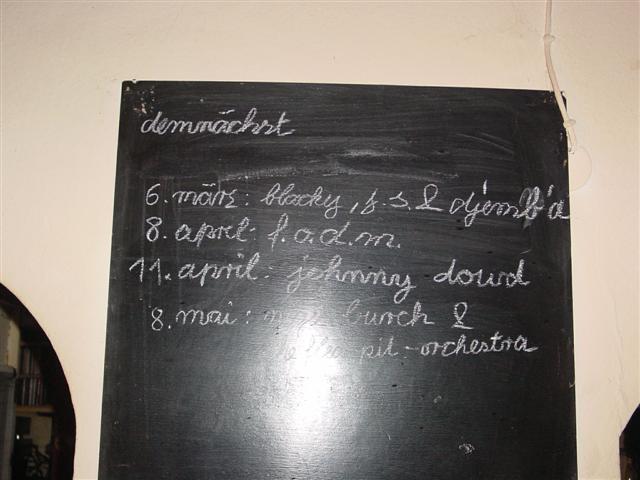 demnächst
6. märz: blacky, f. s. & djemb'd
8. april: f.o.d.m.
11. april: johnny dowd
8. mai: burch &
pit-orchestra